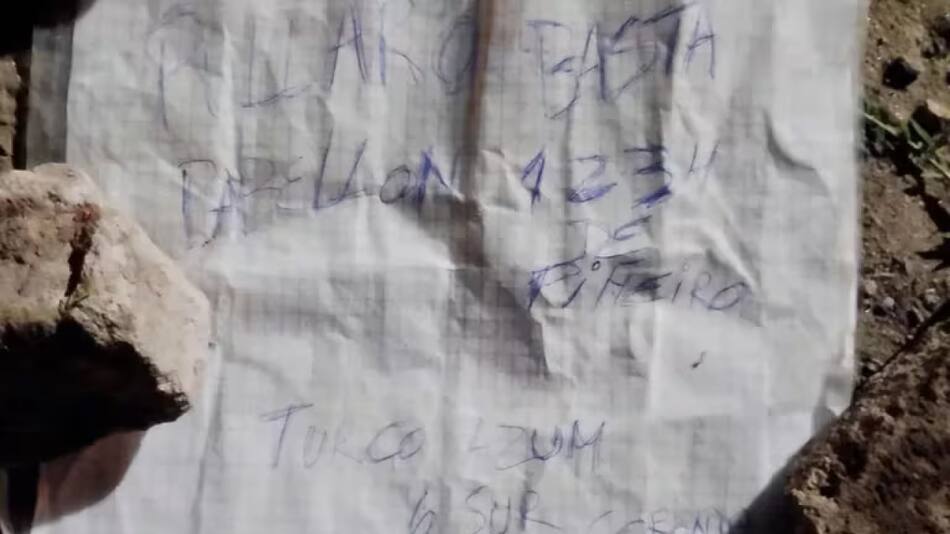 PILLARO BASTA
PABELLON 1 2 3 4
DE
PIÑEIRO
TURCO
SUR